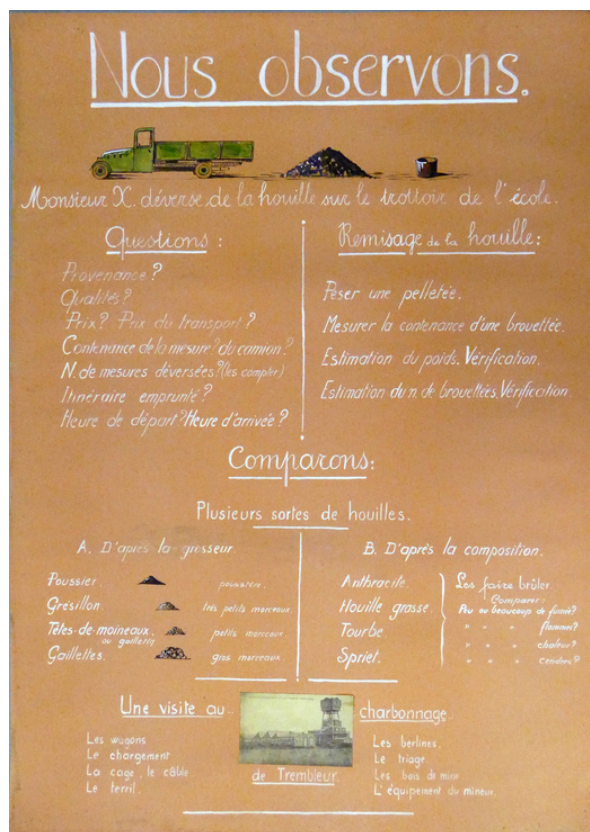 Nous observons.
Monsieur X. déverse de la houille sur le trottoir de l'école.
Questions :
Provenance ?
Qualités ?
Prix ? Prix du transport ?
Contenance de la mesure ? du camion ?
N. de mesures déversées ? (les compter)
Itinéraire emprunté ?
Heure de départ ? Heure d'arrivée ?
Remisage de la houille :
Peser une pelletée.
Mesurer la contenance d'une brouettée.
Estimation du poids. Vérification.
Estimation du n. de brouettées. Vérification.
Comparons :
Plusieurs sortes de houilles.
A. D'après la grosseur.
Poussier. poussière.
Grésillon. très petits morceaux
Têtes-de-moineaux. petits morceaux
ou gailletin
Gaillettes. gros morceaux
B. D'après la composition.
Anthracite.
Houille grasse.
Tourbe.
Spriet.
Les faire brûler.
Comparer :
Peu ou beaucoup de fumée ?
" " " flammes ?
" " " chaleur ?
" " " cendres ?
Une visite au charbonnage
de Trembleur.
Les wagons
Le chargement
La cage, le câble
Le terril.
Les berlines.
Le triage.
Les bois de mine
L'équipement du mineur.